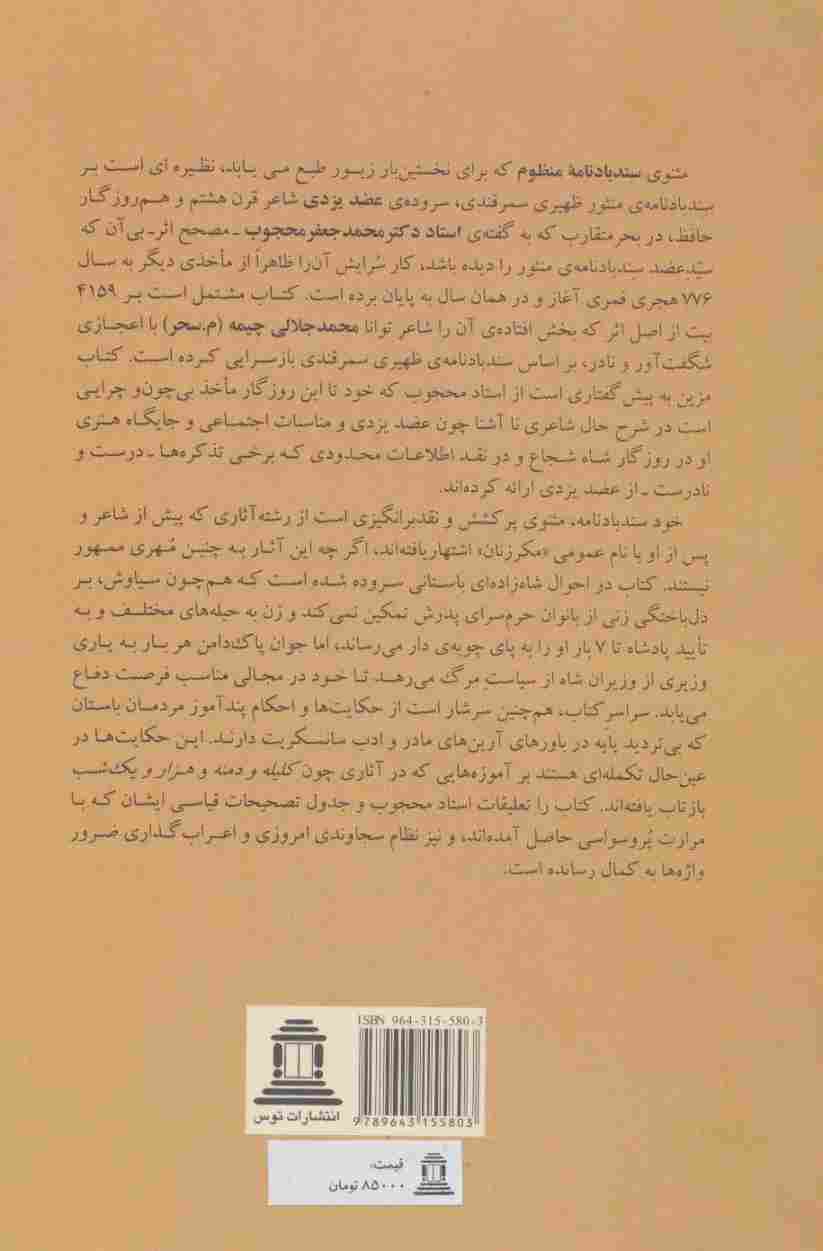 مثنوی سندبادنامهٔ منظوم که برای نخستین‌بار زیور طبع می یابد، نظیره ای است بر
سندبادنامه‌ی منثور ظهیری سمرقندی، سروده‌ی عضد یزدی شاعر قرن هشتم و هم‌روزگار
حافظ، در بحر متقارب که به گفته‌ی استاد دکتر محمدجعفر محجوب ـ مصحح اثر ـ بی‌آن که
سیّدعضد سندبادنامه‌ی منثور را دیده باشد، کار سُرایش آن‌را ظاهراً از مأخذی دیگر به سال
۷۷۶ هجری قمری آغاز و در همان سال به پایان برده است. کتاب مشتمل است بر ۴۱۵۹
بیت از اصل اثر که بخش افتاده‌ی آن را شاعر توانا محمدجلالی چیمه (م.سحر) با اعجازی
شگفت‌آور و نادر، بر اساس سندبادنامه‌ی ظهیری سمرقندی بازسرایی کرده است. کتاب
مزین به پیش‌گفتاری است از استاد محجوب که خود تا این روزگار مأخذ بی‌چون‌و چرایی
است در شرح حال شاعری نا آشنا چون عضد یزدی و مناسبات اجتماعی و جایگاه هنری
او در روزگار شاه شجاع و در نقد اطلاعات محدودی که برخی تذکره‌ها ـ درست و
نادرست ـ از عضد یزدی ارائه کرده‌اند.
خود سندبادنامه، مثنوی پرکشش و نقدبرانگیزی است از رشته‌آثاری که پیش از شاعر و
پس از او با نام عمومی «مکرزنان» اشتهاریافته‌اند، اگر چه این آثار به چنین مُهری ممهور
نیستند. کتاب در احوال شاه‌زاده‌ای باستانی سروده شده است که هم‌چون سیاوش، بر
دل‌باختگی زنی از بانوان حرم‌سرای پدرش تمکین نمی‌کند و زن به حیله‌های مختلف و به
تأیید پادشاه تا ۷ بار او را به پای چوبه‌ی دار می‌رساند، اما جوان پاک‌دامن هر بار به یاری
وزیری از وزیران شاه از سیاستِ مرگ می‌رهد تا خود در مجالی مناسب فرصت دفاع
می‌یابد. سراسر کتاب، هم‌چنین سرشار است از حکایت‌ها و احکام پندآموز مردمان باستان
که بی‌تردید پایه در باورهای آیین‌های مادر و ادب سانسکریت دارند. این حکایت‌ها در
عین‌حال تکمله‌ای هستند بر آموزه‌هایی که در آثاری چون کلیله و دمنه و هزار و یک‌شب
بازتاب یافته‌اند. کتاب را تعلیقات استاد محجوب و جدول تصحیحات قیاسی ایشان که با
مرارت پُروسواسی حاصل آمده‌اند، و نیز نظام سجاوندی امروزی و اعراب‌گذاری ضرور
واژه‌ها به کمال رسانده است.
ISBN 964-315-580-3
انتشارات توس
9 789643 155803
قیمت:
۸۵۰۰۰ تومان